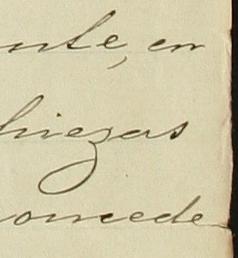 nte, en
hiezas
oncede